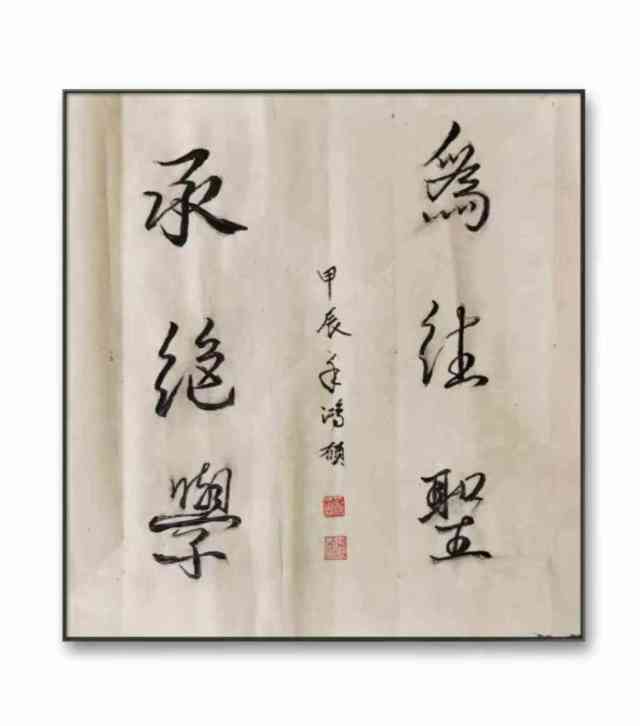 爲往聖
承絕學
甲辰年鴻碩